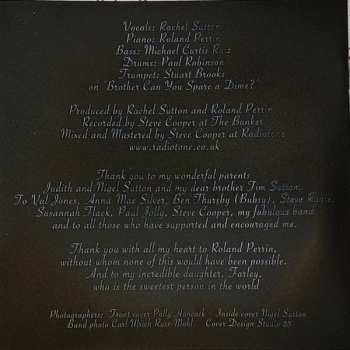 Vocals: Rachel Sutton
Piano: Roland Perrin
Bass: Michael Curtis Ruiz
Drums: Paul Robinson
Trumpet: Stuart Brooks
on "Brother Can You Spare a Dime?"
Produced by Rachel Sutton and Roland Perrin
Recorded by Steve Cooper at The Bunker
Mixed and Mastered by Steve Cooper at Radiotone
www.radiotone.co.uk
Thank you to my wonderful parents
Judith and Nigel Sutton and my dear brother Tim Sutton.
To Val Jones, Anna Mae Silver, Ben Thursby (Bubsy), Steve
Susannah Flack, Paul Jolly, Steve Cooper, my fabulous band
and to all those who have supported and encouraged me.
Thank you with all my heart to Roland Perrin,
without whom none of this would have been possible.
And to my incredible daughter, Farley,
who is the sweetest person in the world
Photographers: Front cover Polly Hancock Inside cover Nigel Sutton
Band photo Carl Cover Design Studio